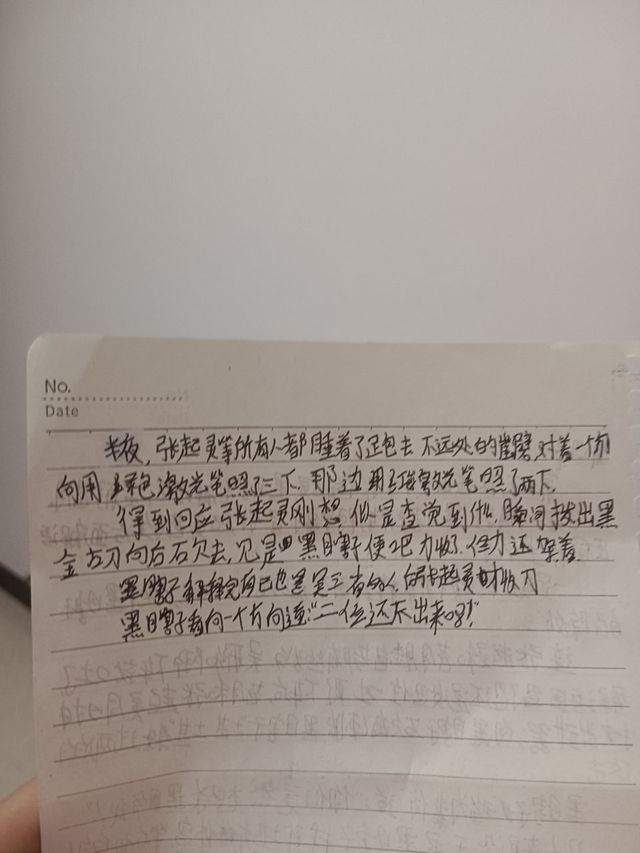 No.
Date
半夜，张起灵等所有人都睡着了跑去不远处的崖壁，对着一个方
向用 色激光笔照了三下．那边用 激光笔照了两下．
得到回应张起灵刚想 似是查觉到什么，瞬间拔出黑
金古刀向后 去，见是 黑瞎子便把刀收了．但刀还架着
黑瞎子解释完自己也是吴三省的人，张起灵才收刀
黑瞎子看向一个方向道：“二位还不出来吗！”